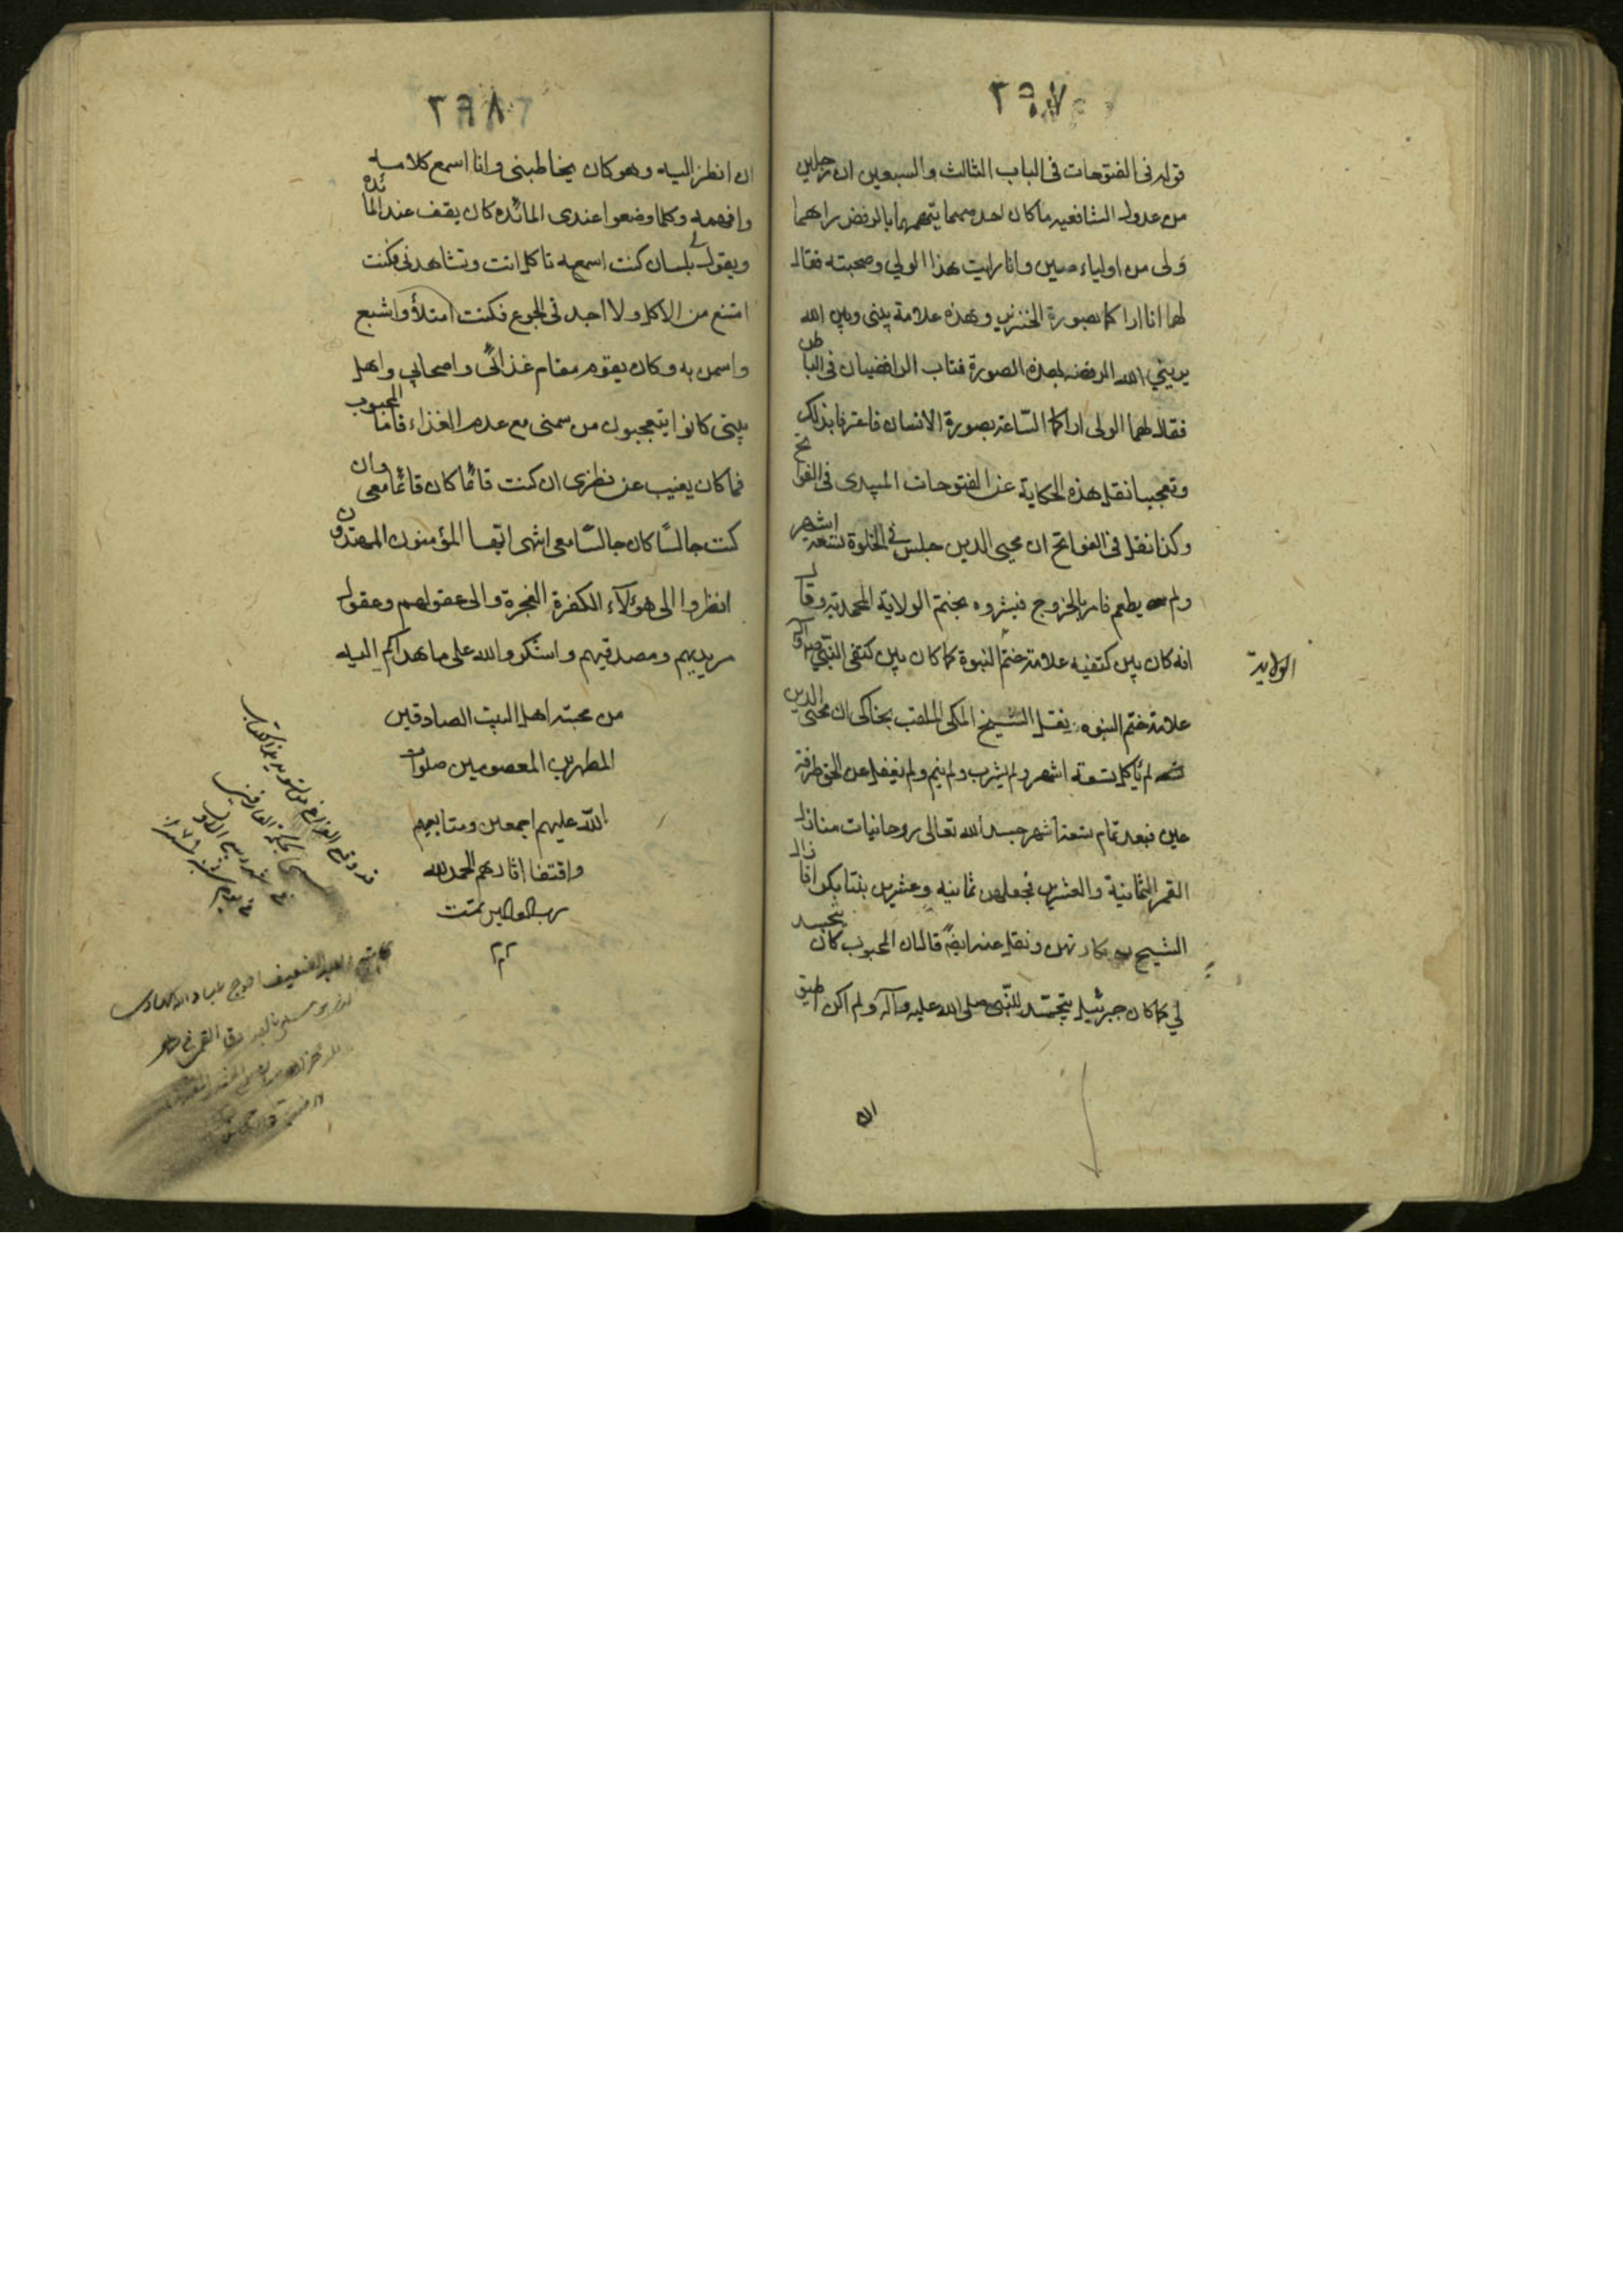 ٢٩٧
قوله فى الفتوحات فى الباب الثالث والسبعين ان رجلين
من عدول الشافعيه ما كان احد منهما يتهمهما بالرفض راهما
ولى من اولياء صين وانا رايت هذا الولي وصحبته فقال
لهما انا اراكما بصورة الخنزير وهذه علامة بينى وبين الله
يريني الله الرفضه بهذه الصورة فتاب الرافضيان فى الباطن
فقال لهما الولى اراكما الساعة بصورة الانسان فاعترفا بذلك
وتعجبا نقل هذه الحكاية عن الفتوحات الميبدى فى الفواتح
وكذا نقل فى الفواتح ان محيى الدين جلس فى الخلوة تسعة اشهر
ولم يطعم فامر بالخروج فبشروه بختم الولاية المحمدية وقال
انه كان بين كتفيه علامة ختم النبوة كما كان بين كتفى النبى
الولاية
علامة ختم النبوه نقل الشيخ المكى الملقب بخاكى ان محيى الدين
لم ياكل تسعة اشهر ولم يشرب ولم ينم ولم يغفل عن الحق طرفة
عين فبعد تمام تسعة اشهر جسد الله تعالى روحانيات منازل
القمر الثمانية والعشرين فجعلهن ثمانيه وعشرين بنتا بكرا فازال
الشيخ بكارتهن ونقل عنه ايضا قال ان المحبوب كان يتجسد
لي كما كان جبرئيل يتجسد للنبى صلى الله عليه وآله ولم اكن اطيق
ان
٢٩٨
ان انظر اليه وهو كان يخاطبنى وانا اسمع كلامه
وافهمه وكلما وضعوا عندى المائده كان يقف عند المائده
ويقول لى بلسان كنت اسمعه تاكل انت وتشاهدنى فكنت
امتنع من الاكل ولا اجد فى الجوع فكنت امتلأ واشبع
واسمن به وكان يقوم مقام غذائى واصحابي واهل
بيتى كانوا يتعجبون من سمنى مع عدم الغذاء فاما المحبوب
فما كان يغيب عن نظرى ان كنت قائما كان قائما معى وان
كنت جالسا كان جالسا معى انتهى ايها المؤمنون المهتدون
انظروا الى هؤلآء الكفرة الفجرة والى عقولهم وعقول
مريديهم ومصدقيهم واشكروا الله على ما هداكم اليه
من محبته اهل البيت الصادقين
المطهرين المعصومين صلوات
الله عليهم اجمعين ومتابعيهم
واقتفا اثارهم الحمد لله
رب العالمين تمت
قد وقع الفراغ من تسويد هذا الكتاب
كاتبه العبد الضعيف